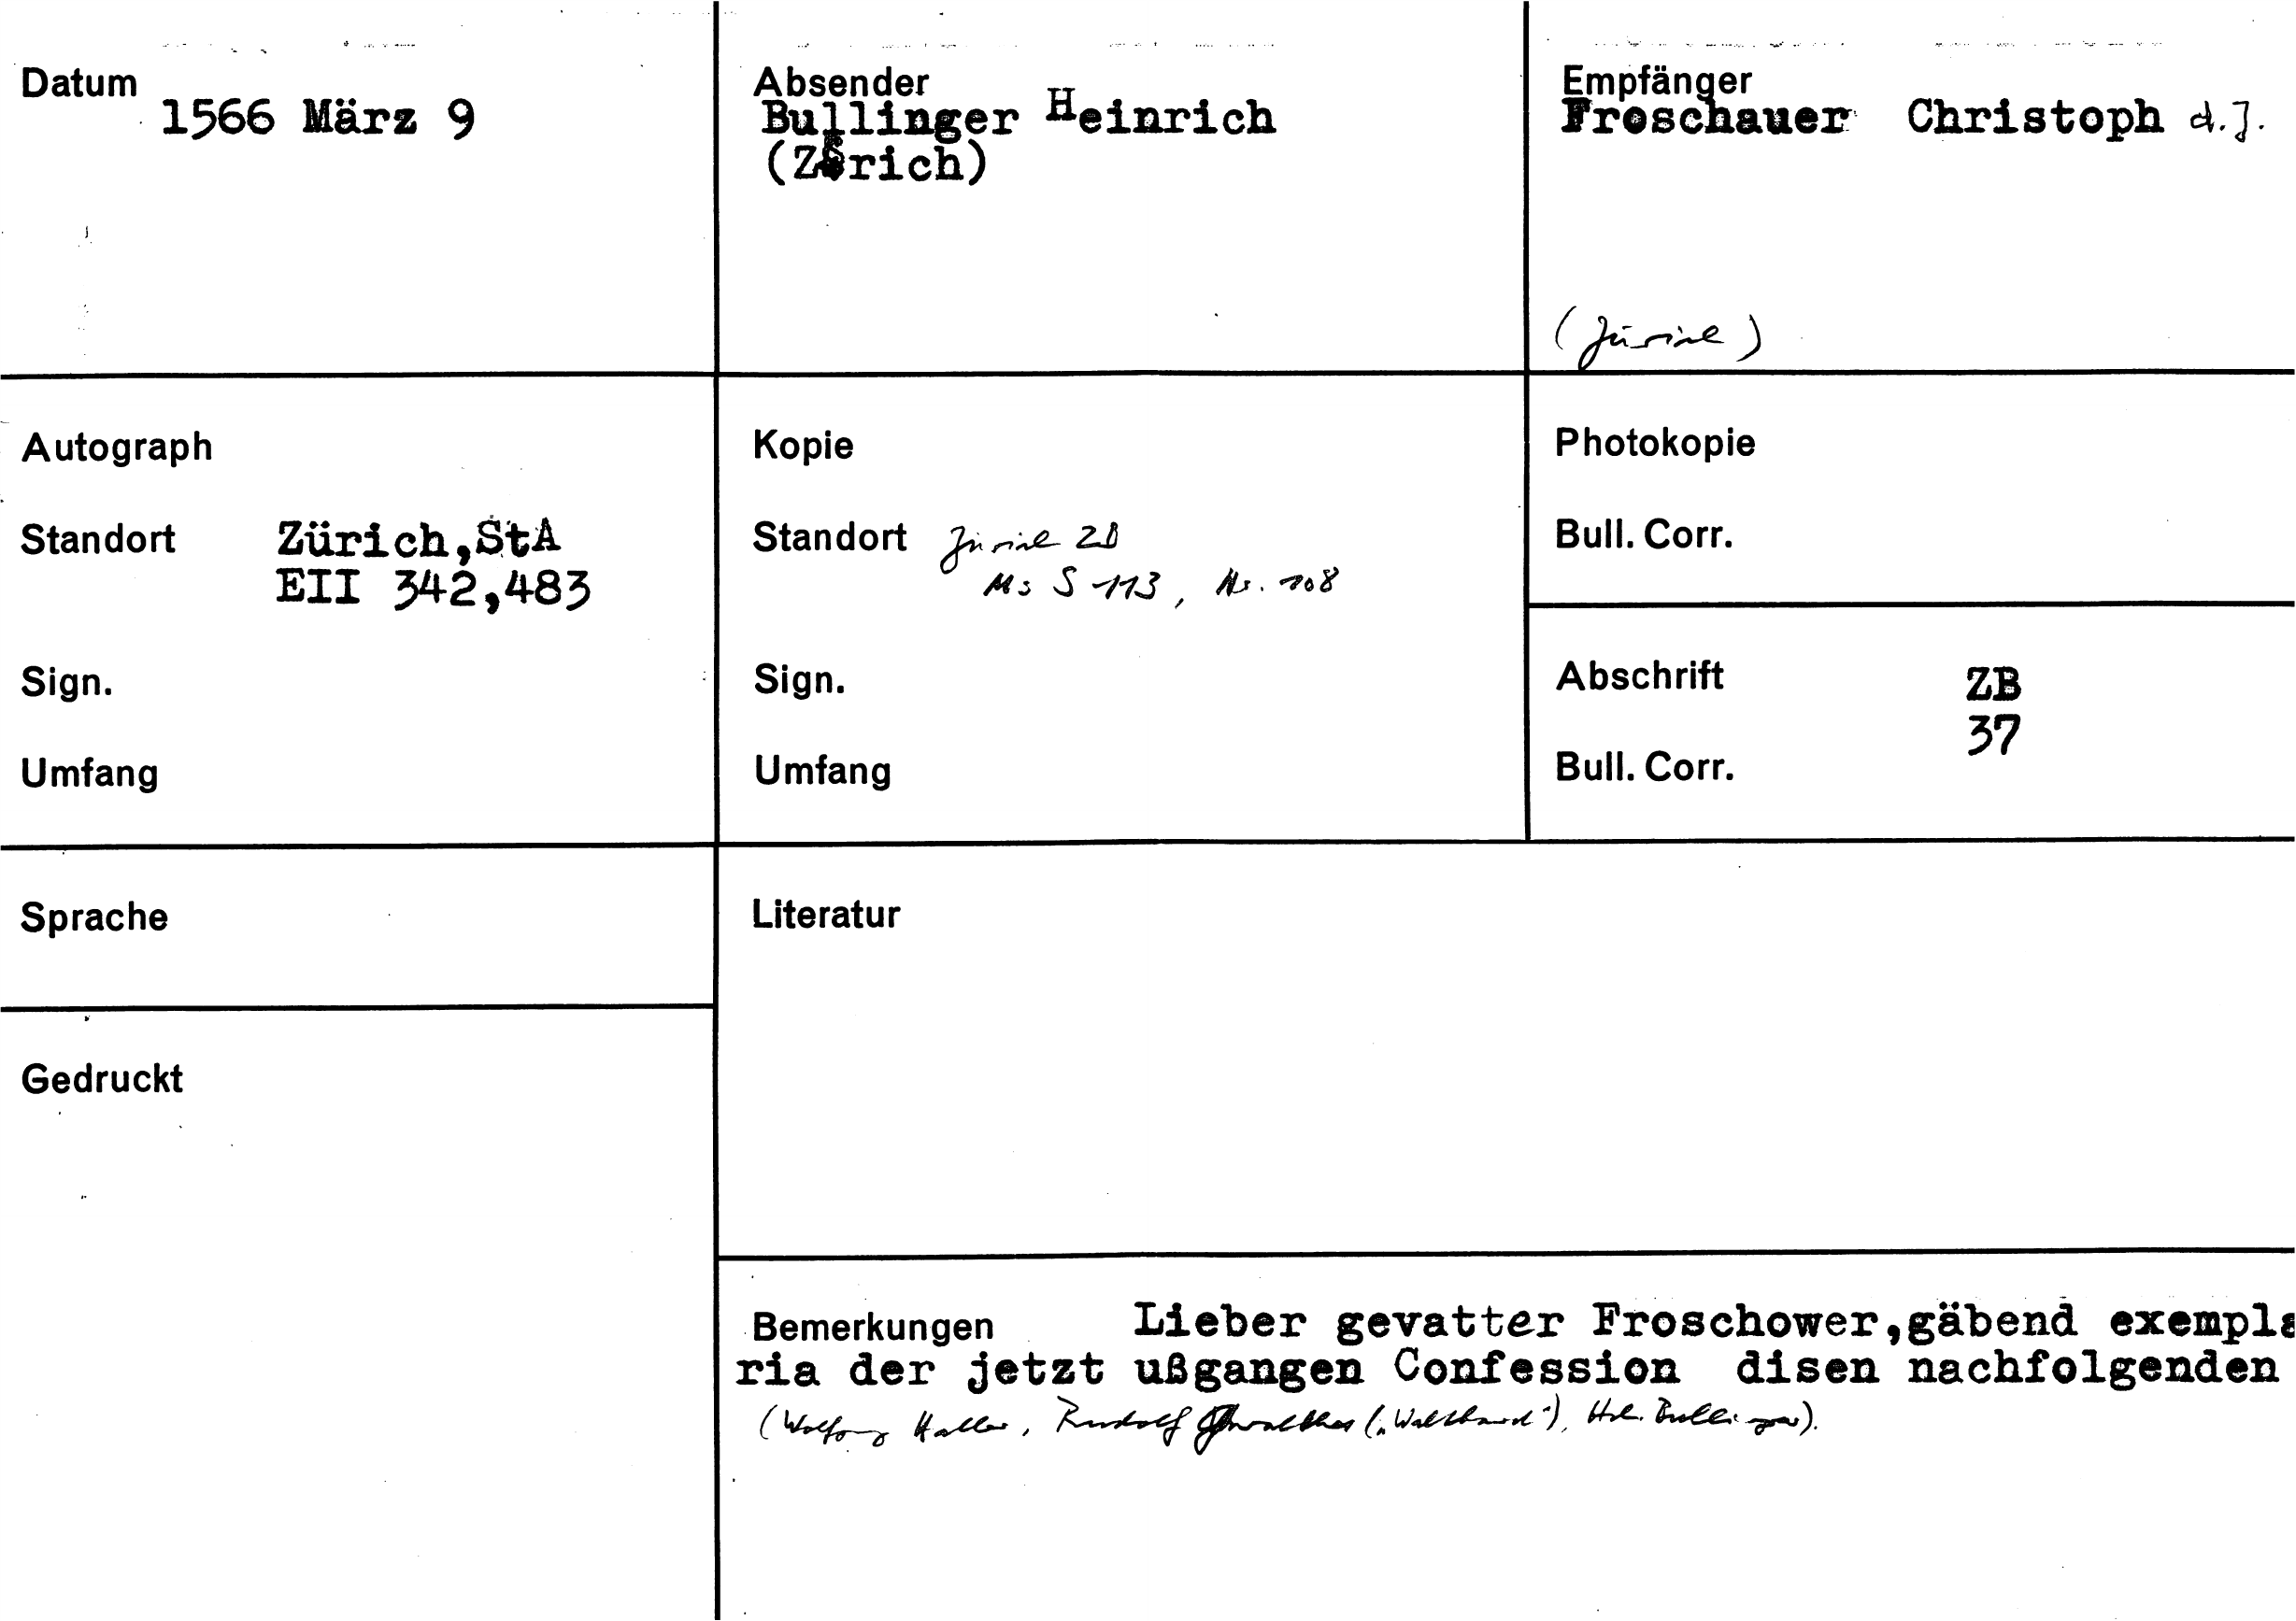 Datum
1566 März 9
Absender
Bullinger Heinrich
(Zürich)
Empfänger
Froschauer Christoph d.J.
(Zürich)
Autograph
Standort Zürich,StA
EII 342,483
Sign.
Umfang
Kopie
Standort Zürich ZB
Ms S 113, Nr. 108
Sign.
Umfang
Photokopie
Bull. Corr.
Abschrift ZB
37
Bull. Corr.
Sprache
Gedruckt
Literatur
Bemerkungen Lieber gevatter Froschower,gäbend exempla
ria der jetzt ußgangen Confession disen nachfolgenden
(Wolfgang Haller, Rudolf Gwalther („Walthard“), Hch. Bullinger).